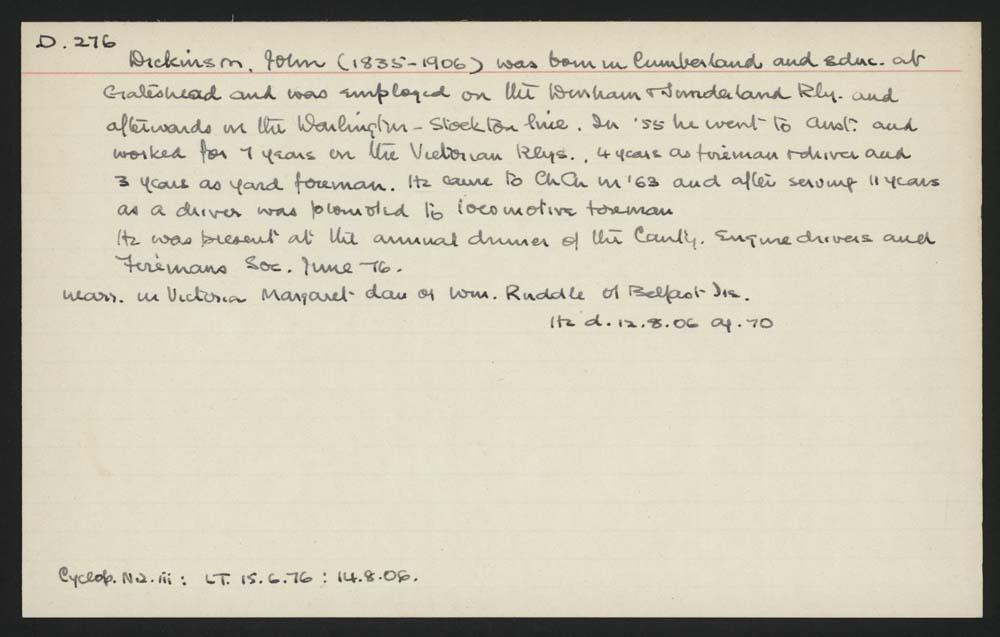 D. 276
Dickinson, John (1835-1906) was born in Cumberland and educ. at
Gateshead and was employed on the Durham & Sunderland Rly. and
afterwards on the Darlington - Stockton line. In '55 he went to Aust: and
worked for 7 years on the Victorian Rlys., 4 years as fireman & driver and
3 years as yard foreman. He came to ChCh in '63 and after serving 11 years
as a driver was promoted to locomotive foreman
He was present at the annual dinner of the Canty. Engine drivers and
Firemans Soc. June 76.
marr. in Victoria Margaret dau of Wm. Ruddle of Belfast Ire.
He d. 12.8.06 ag. 70
Cyclop. N.Z. iii : LT. 15.6.76 : 14.8.06.